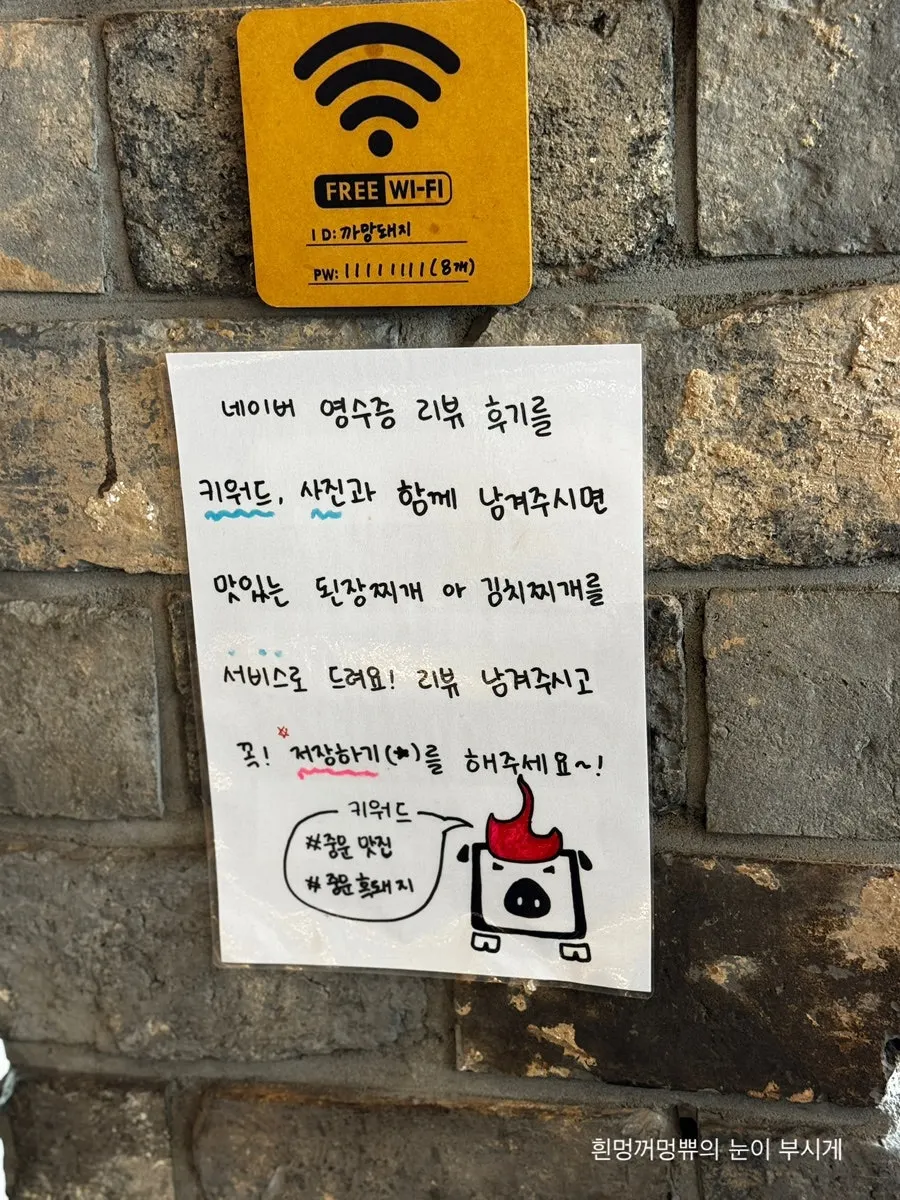 FREE WI-FI
ID: 까망돼지
PW: 11111111(8개)
네이버 영수증 리뷰 후기를
키워드, 사진과 함께 남겨주시면
맛있는 된장찌개 아 김치찌개를
서비스로 드려요! 리뷰 남겨주시고
꼭! 저장하기(★)를 해주세요~!
키워드
#중문 맛집
#중문 흑돼지
흰멍꺼멍쀼의 눈이 부시게